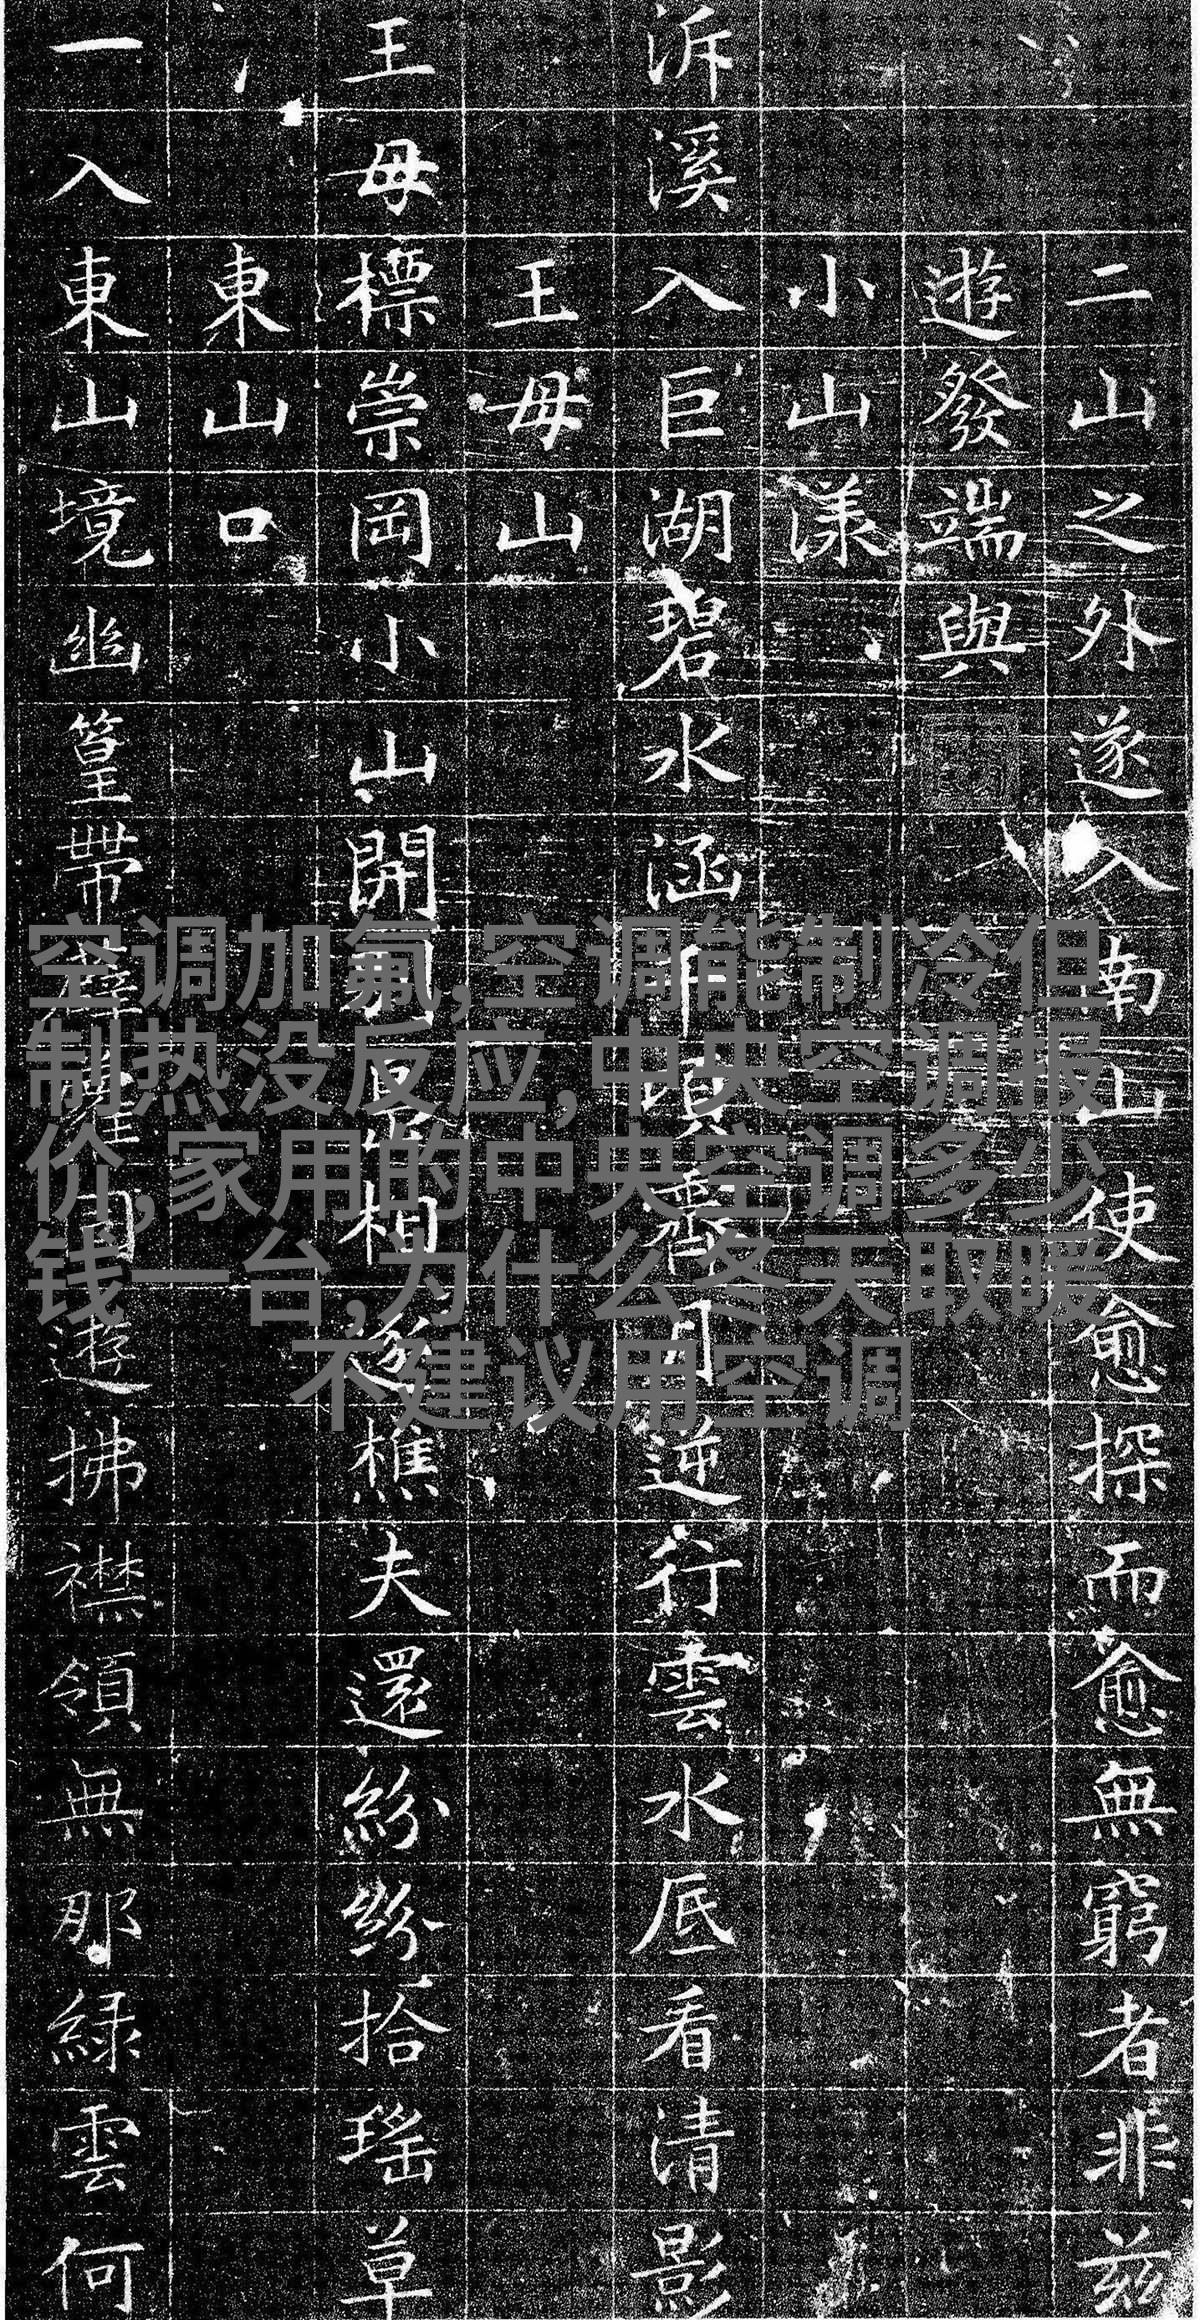 二山之外遂入南山使愈探而愈無窮者非茲
遊發端與
小山漾
泝溪入巨湖碧水涵逆行雲水底看清影
王母山
王母標崇岡小山開樵夫還紛紛拾瑤草
東山口
一入東山境幽篁帶遊拂襟領無那緑雲何
空调加氟,空调能制冷但
制热没反应,中央空调报
价,家用的中央空调多少
钱一台,为什么冬天取暖
不建议用空调